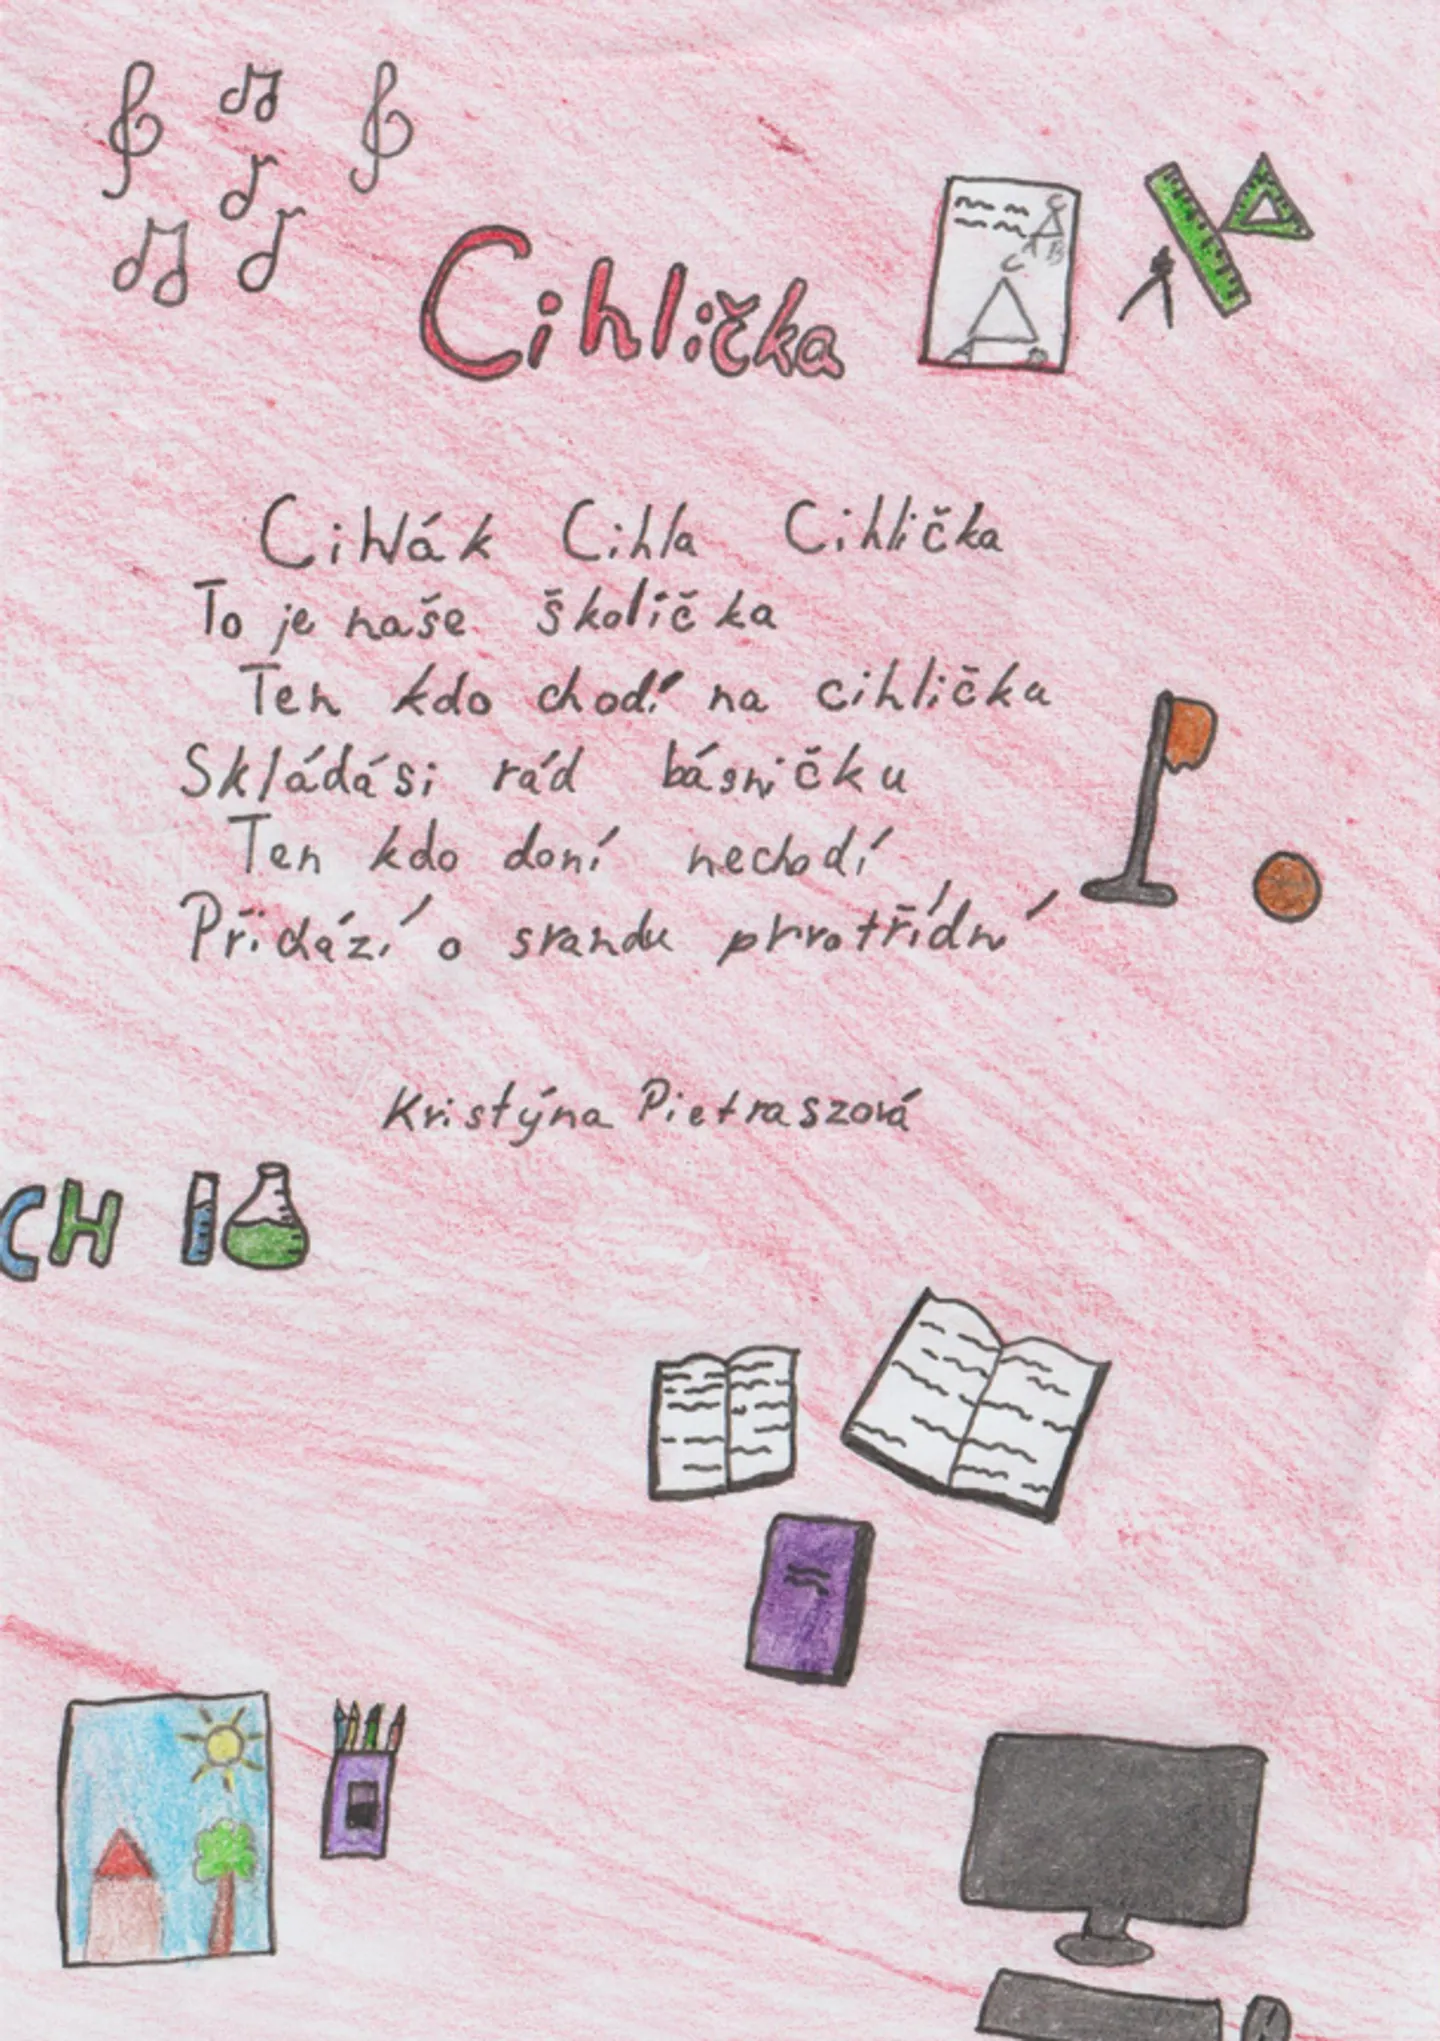 Cihlička
Cihlák Cihla Cihlička
To je naše školička
Ten kdo chodí na cihlička
Skládási rád básničku
Ten kdo doní nechodí
Přidází o srandu prvotřídní
Kristýna Pietraszová
CH